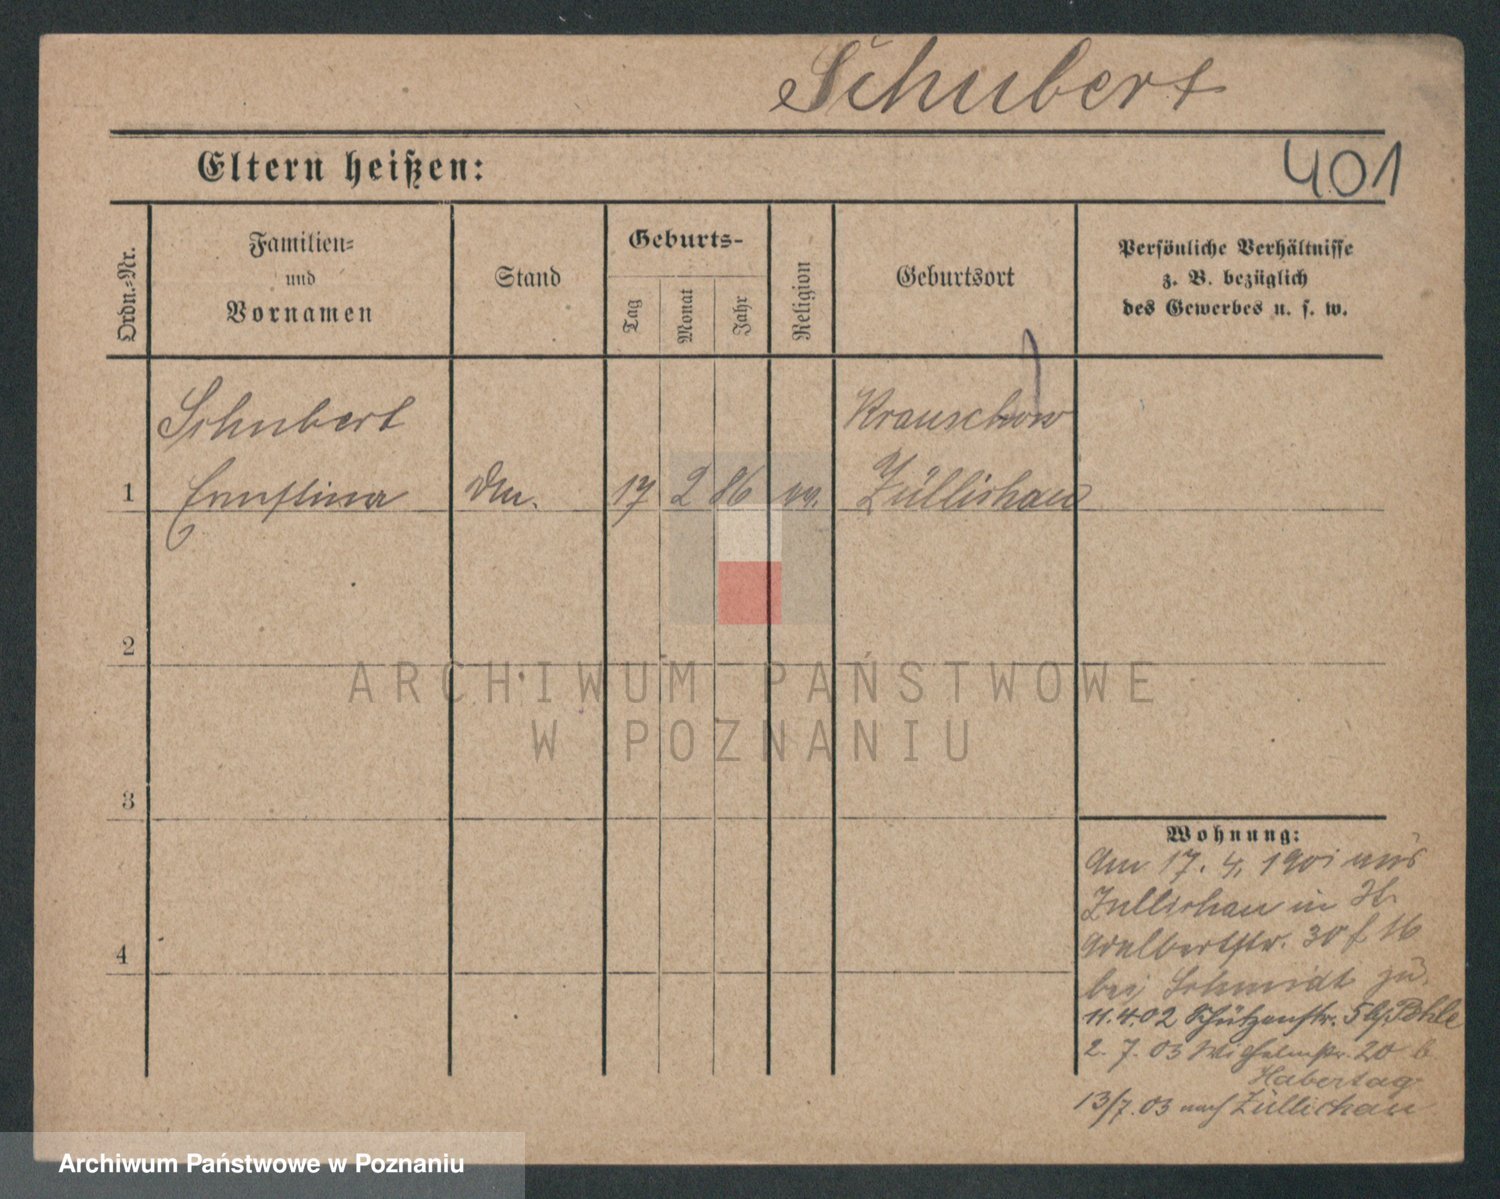 Schubert
401
Eltern heißen:
Ordn.-Nr.
Familien-
und
Vornamen
Stand
Geburts-
Tag
Monat
Jahr
Religion
Geburtsort
Persönliche Verhältnisse
z. B. bezüglich
des Gewerbes u. s. w.
Schubert
Krauschow
1
Ernstina
17
2
86
Züllichau
2
3
4
Wohnung:
Am 17. 4. 1901 aus
Züllichau in
Adalbertstr. 30
bei Schmidt zu.
11.4.02 Schützenstr. 5 b/ Pohle
2. 7. 03 Wilhelmstr. 20 b
Habertag
13/7. 03 nach Züllichau
ARCHIWUM PAŃSTWOWE
W POZNANIU
Archiwum Państwowe w Poznaniu